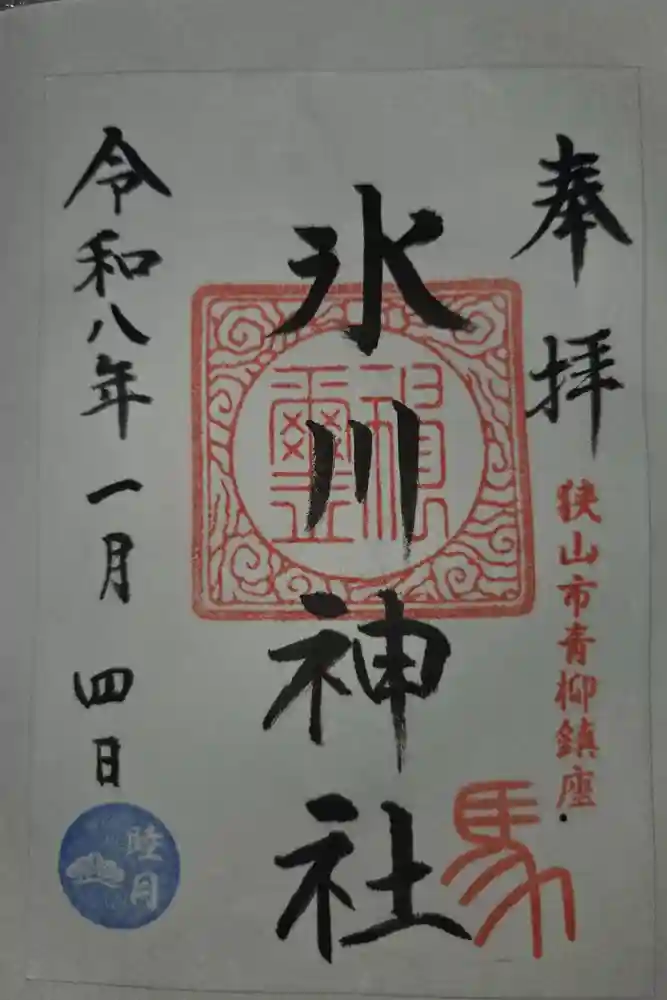 奉拝
狭山市青柳鎮座
馬
氷川神社
令和八年一月四日
睦月